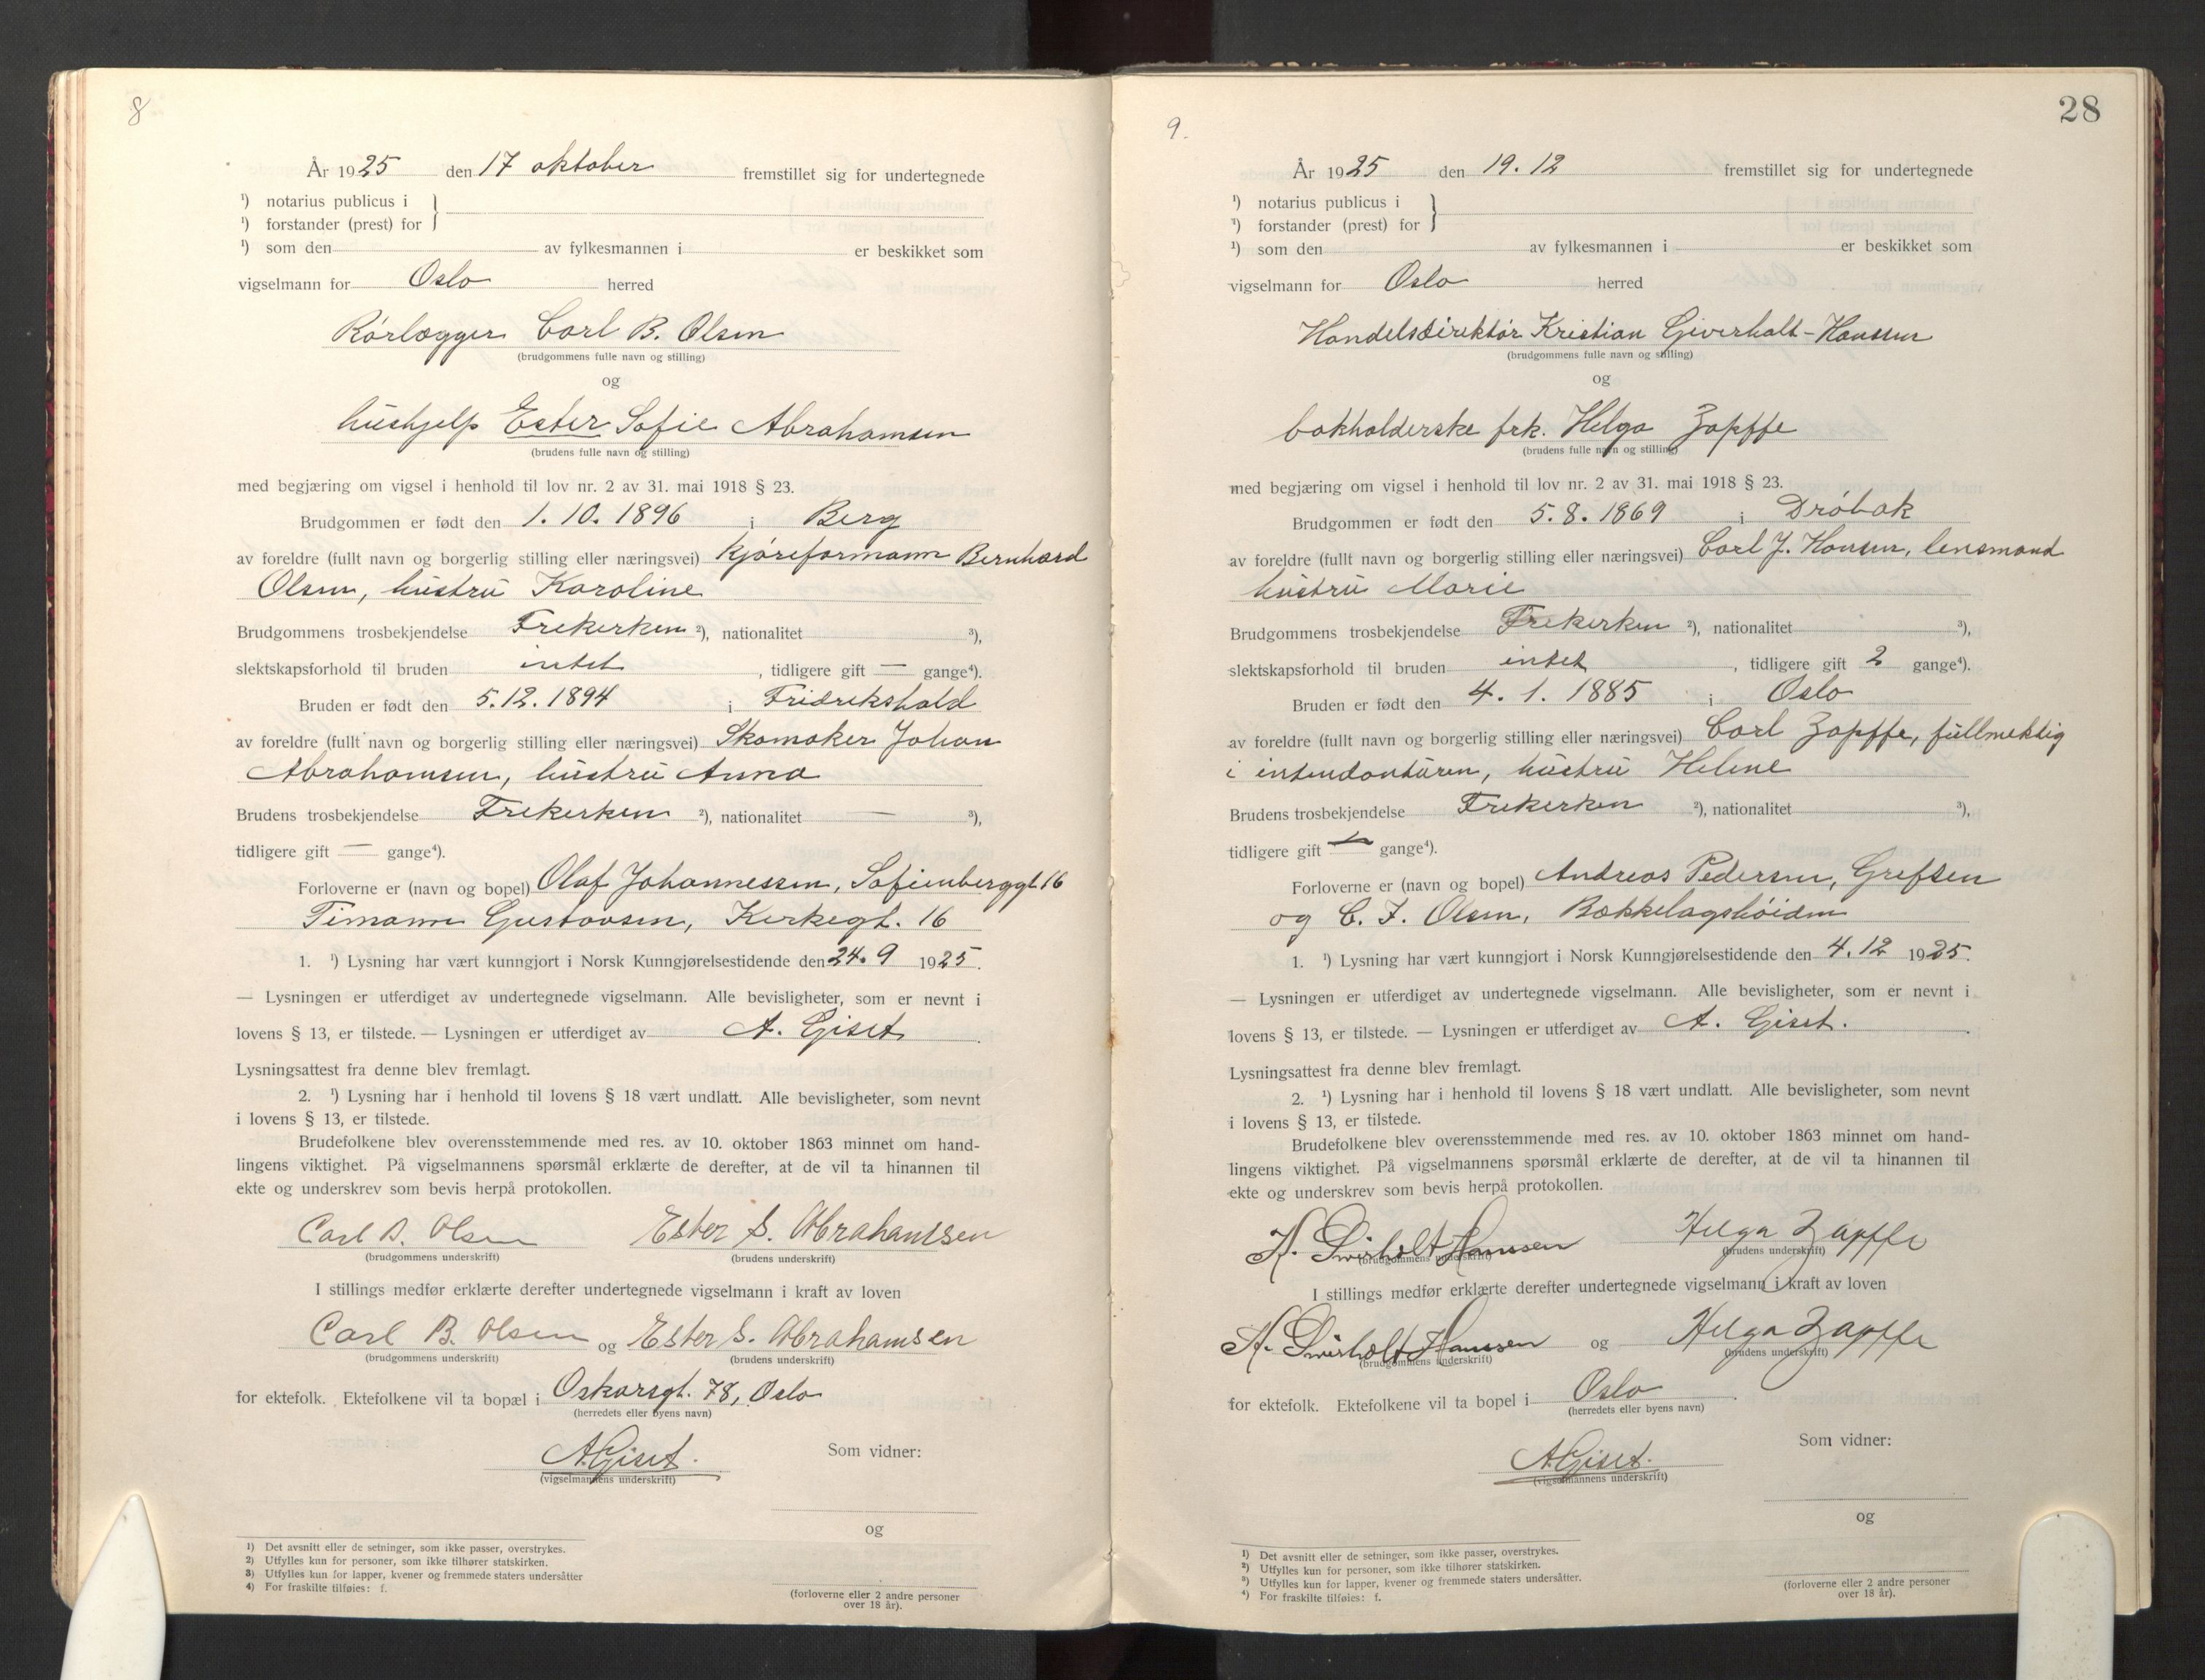 8
År 1925 den 17 oktober fremstillet sig for undertegnede
¹) notarius publicus i
¹) forstander (prest) for
¹) som den av fylkesmannen i er beskikket som
vigselmann for Oslo herred
Rörlægger Carl B. Olsen
(brudgommens fulle navn og stilling)
og
hushjelp Ester Sofie Abrahamsen
(brudens fulle navn og stilling)
med begjæring om vigsel i henhold til lov nr. 2 av 31. mai 1918 § 23.
Brudgommen er født den 1. 10. 1896 i Berg
av foreldre (fullt navn og borgerlig stilling eller næringsvei) Kjöreformann Bernhard
Olsen, hustru Karoline
Brudgommens trosbekjendelse Frikirken ²), nationalitet ³),
slektskapsforhold til bruden intet, tidligere gift — gange⁴).
Bruden er født den 5.12. 1894 i Fridrikshald
av foreldre (fullt navn og borgerlig stilling eller næringsvei) Skomaker Johan
Abrahamsen, hustru Anna
Brudens trosbekjendelse Frikirken ²), nationalitet — ³),
tidligere gift — gange⁴).
Forloverne er (navn og bopel) Olaf Johannessen, Sofienberggt. 16
Timann Gustavsen, Kirkegt. 16
1. ¹) Lysning har vært kunngjort i Norsk Kunngjørelsestidende den 24. 9 1925.
— Lysningen er utferdiget av undertegnede vigselmann. Alle bevisligheter, som er nevnt i
lovens § 13, er tilstede. — Lysningen er utferdiget av A. Giset.
Lysningsattest fra denne blev fremlagt.
2. ¹) Lysning har i henhold til lovens § 18 vært undlatt. Alle bevisligheter, som nevnt
i lovens § 13, er tilstede.
Brudefolkene blev overensstemmende med res. av 10. oktober 1863 minnet om hand-
lingens viktighet. På vigselmannens spørsmål erklærte de derefter, at de vil ta hinannen til
ekte og underskrev som bevis herpå protokollen.
Carl B. Olsen Ester S. Abrahamsen
(brudgommens underskrift) (brudens underskrift)
I stillings medfør erklærte derefter undertegnede vigselmann i kraft av loven
Carl B. Olsen og Ester S. Abrahamsen
(brudgommens underskrift) (brudens underskrift)
for ektefolk. Ektefolkene vil ta bopæl i Oskarsgt. 78, Oslo
(herredets eller byens navn)
A. Giset. Som vidner:
(vigselmannens underskrift)
og
¹) Det avsnitt eller de setninger, som ikke passer, overstrykes.
²) Utfylles kun for personer, som ikke tilhører statskirken.
³) Utfylles kun for lapper, kvener og fremmede staters undersåtter
⁴) For fraskilte tilføies: f.
(forloverne eller 2 andre personer
over 18 år).
28
9.
År 1925 den 19. 12 fremstillet sig for undertegnede
¹) notarius publicus i
¹) forstander (prest) for
¹) som den av fylkesmannen i er beskikket som
vigselmann for Oslo herred
Handelsdirektör Kristian Giverholt-Hansen
(brudgommens fulle navn og stilling)
og
bokholderske frk. Helga Zapffe
(brudens fulle navn og stilling)
med begjæring om vigsel i henhold til lov nr. 2 av 31. mai 1918 § 23.
Brudgommen er født den 5. 8. 1869 i Dröbak
av foreldre (fullt navn og borgerlig stilling eller næringsvei) Carl J. Hansen, lensmand
hustru Marie
Brudgommens trosbekjendelse Frikirken ²), nationalitet ³),
slektskapsforhold til bruden intet, tidligere gift 2 gange⁴).
Bruden er født den 4. 1. 1885 i Oslo
av foreldre (fullt navn og borgerlig stilling eller næringsvei) Carl Zapffe, fullmektig
i intendanturen, hustru Helene
Brudens trosbekjendelse Frikirken ²), nationalitet ³),
tidligere gift — gange⁴).
Forloverne er (navn og bopel) Andreas Pedersen, Grefsen
og C. F. Olsen, Bækkelagshöiden
1. ¹) Lysning har vært kunngjort i Norsk Kunngjørelsestidende den 4. 12 1925.
— Lysningen er utferdiget av undertegnede vigselmann. Alle bevisligheter, som er nevnt i
lovens § 13, er tilstede. — Lysningen er utferdiget av A. Giset.
Lysningsattest fra denne blev fremlagt.
2. ¹) Lysning har i henhold til lovens § 18 vært undlatt. Alle bevisligheter, som nevnt
i lovens § 13, er tilstede.
Brudefolkene blev overensstemmende med res. av 10. oktober 1863 minnet om hand-
lingens viktighet. På vigselmannens spørsmål erklærte de derefter, at de vil ta hinannen til
ekte og underskrev som bevis herpå protokollen.
K. Giverholt Hanssen Helga Zapffe
(brudgommens underskrift) (brudens underskrift)
I stillings medfør erklærte derefter undertegnede vigselmann i kraft av loven
K. Giverholt Hanssen og Helga Zapffe
(brudgommens underskrift) (brudens underskrift)
for ektefolk. Ektefolkene vil ta bopel i Oslo
(herredets eller byens navn)
A. Giset. Som vidner:
(vigselmannens underskrift)
og
¹) Det avsnitt eller de setninger, som ikke passer, overstrykes.
²) Utfylles kun for personer, som ikke tilhører statskirken.
³) Utfylles kun for lapper, kvener og fremmede staters undersåtter.
⁴) For fraskilte tilføies: f.
(forloverne eller 2 andre personer
over 18 år).